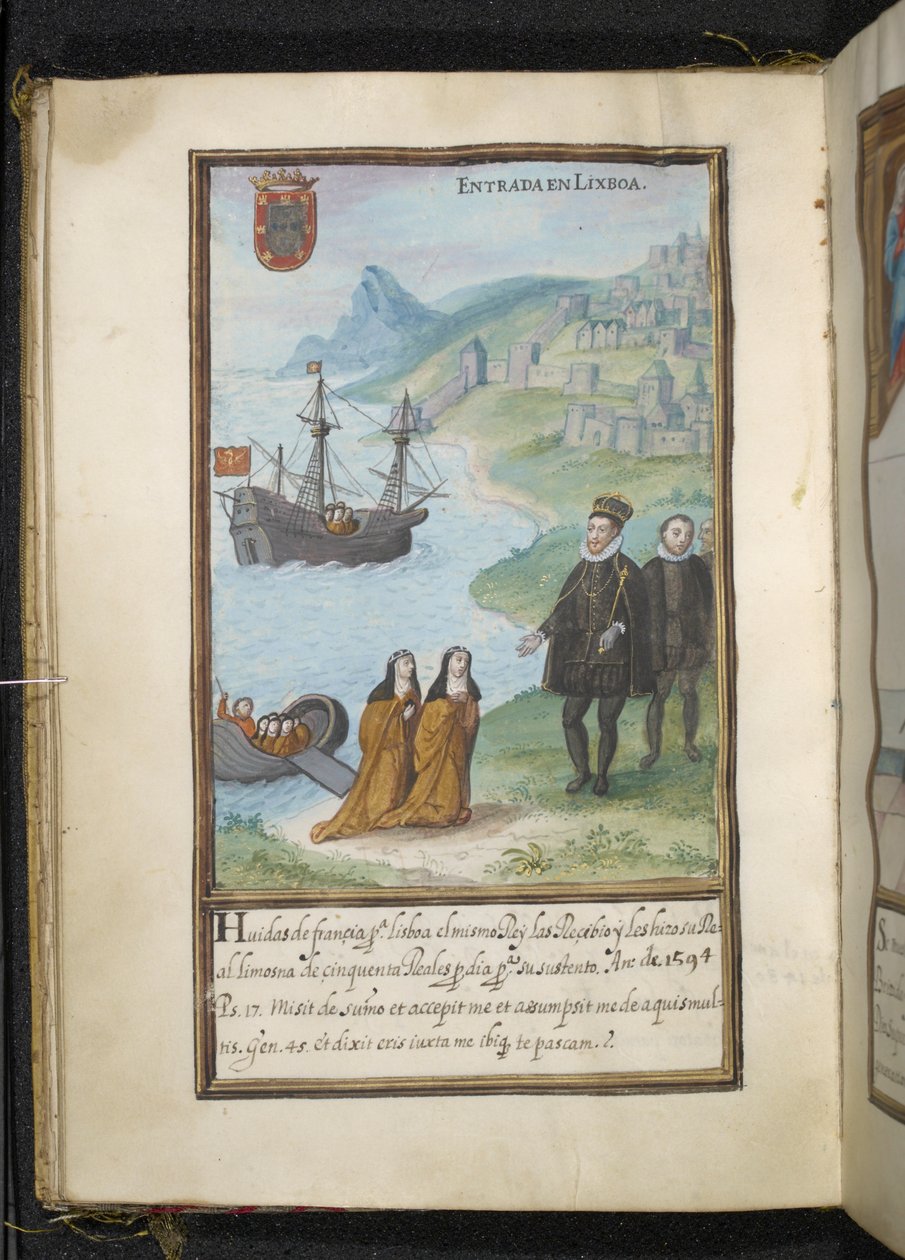 ENTRADA EN LIXBOA.
Huidas de françia pª. lisboa el mismo Rey las Reçibio y les hizo su Re-
al limosna de çinquenta Reales p dia pª. su sustento. An̄. de. 1594
Ps. 17. Misit de sum̄o et accepit me et assumpsit me de aquis mul-
tis. Gen̄. 45. et dixit eris iuxta me ibiq, te pascam. 2.